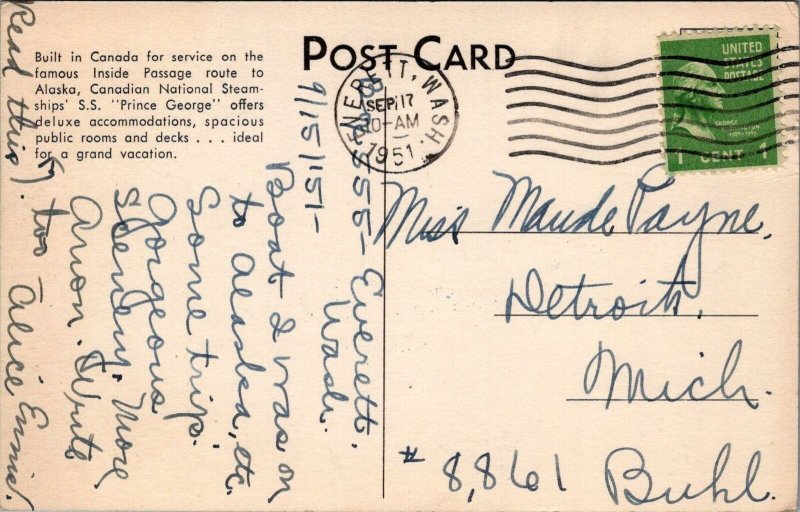 POST CARD
Built in Canada for service on the
famous Inside Passage route to
Alaska, Canadian National Steam-
ships' S.S. "Prince George" offers
deluxe accommodations, spacious
public rooms and decks . . . ideal
for a grand vacation.
EVERETT, WASH.
SEP 17
10-AM
1951
UNITED
STATES
POSTAGE
1 CENT 1
Miss Maude Payne,
Detroit,
Mich.
# 8,861 Buhl.
Everett,
Wash.
9/15/51-
Boat I was on
to Alaska, etc.
Some trip.
Gorgeous
scenery. More
anon. Write
too - Alice Ermie.
Read this).